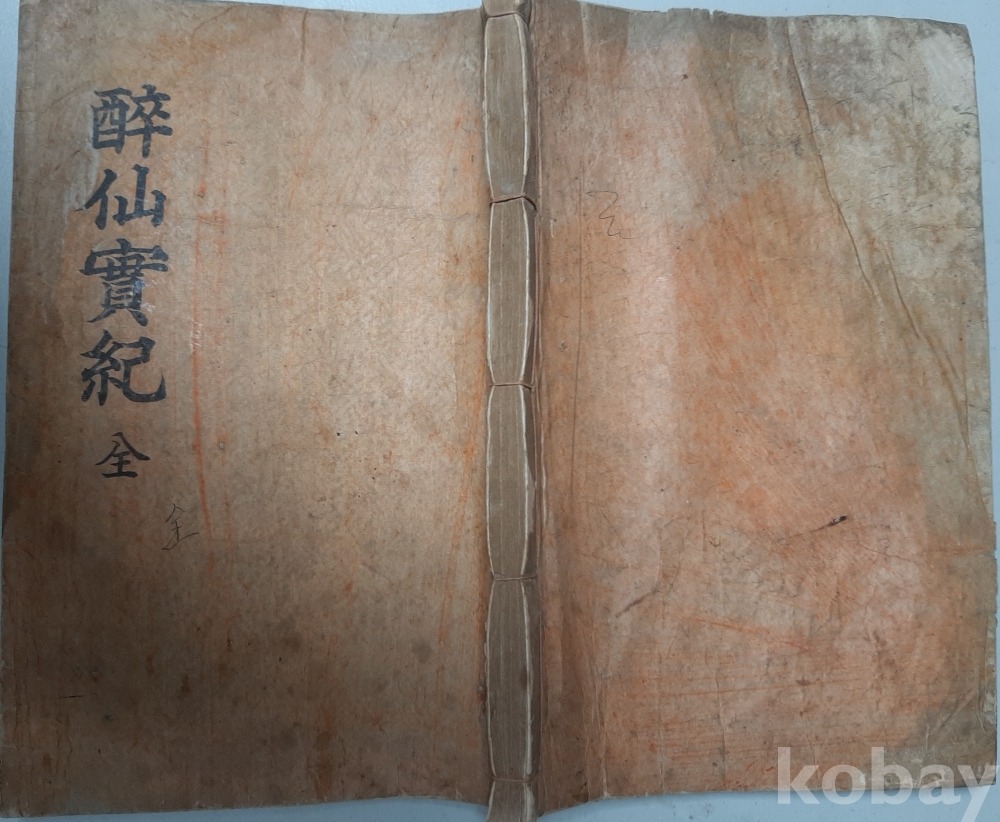 醉仙實紀 全
全
kobay